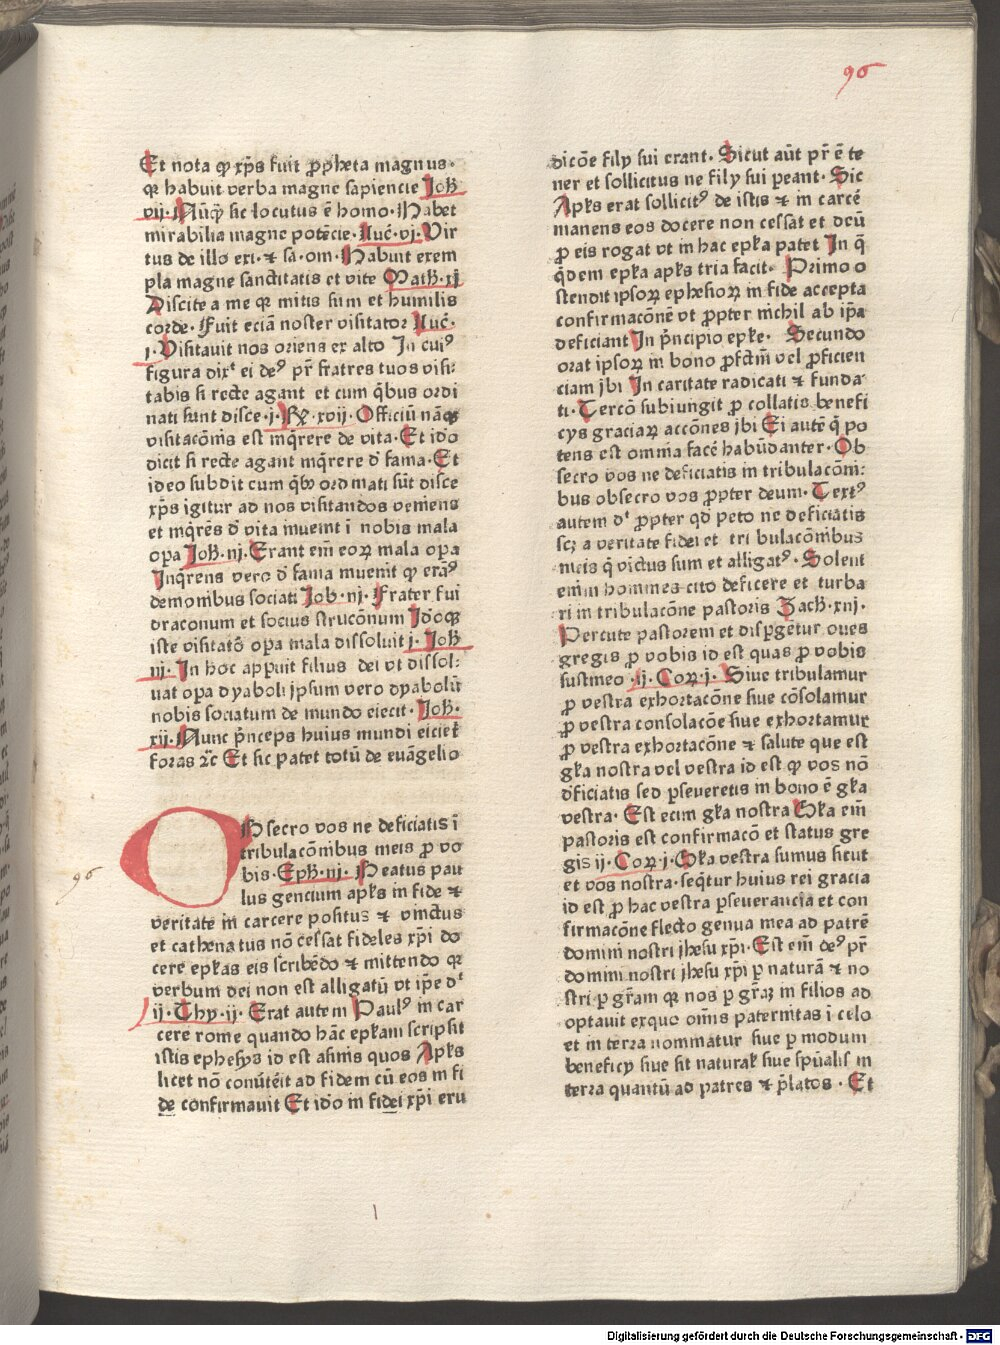 96
Et nota ꝙ xp̄s fuit ꝓpheta magnus·
qꝛ habuit verba magne sapiencie Joh̄
vij· Nūqͣ sic locutus ē homo· Habet
mirabilia magne potēcie· Luc̄· vj· Vir
tus de illo exi· ⁊ sa· om· Habuit exem
pla magne sanctitatis et vite Math· xj
Discite a me qꝛ mitis sum et humilis
corde· Fuit eciā noster visitator Luc̄·
j· Visitavit nos oriens ex alto In cuiꝰ
figura dixᵗ ei deꝰ pr̄ fratres tuos visi:
tabis si recte agant et cum qͥbus ordi
nati sunt disce· j· Rꝝ· xvij· Officiū nāqꝫ
visitacōis est inqͥrere de vita· Et ido
dicit si recte agant inqͥrere d̄ fama· Et
ideo subdit cum qͥbꝰ ordinati sūt disce
xp̄s igitur ad nos visitandos veniens
et inqͥrēs d̄ vita invenit ī nobis mala
oꝑa Joh̄· iij· Erant em̄ eoꝝ mala oꝑa
Inqͥrens vero d̄ fama invenit ꝙ erāꝰ
demonibus sociati Job· iij· Frater fui
draconum et socius strucōnum Idoqꝫ
iste visitatō oꝑa mala dissoluit j· Joh̄
iij· In hoc apꝑuit filius dei vt dissol:
uat oꝑa dyaboli ipsum vero dyabolū
nobis sociatum de mundo eiecit· Joh̄·
xij· Nunc pͥnceps huius mundi eiciet
foras ⁊c̄ Et sic patet totū de euāngelio
OBsecro vos ne deficiatis ī
tribulacōnibus meis ꝓ vo
bis· Eph̄· iij· Beatus pau
lus gencium apl̄s in fide ⁊
96
veritate in carcere positus ⁊ vinctus
et cathenatus nō cessat fideles xp̄i do
cere epl̄as eis scribēdo ⁊ mittendo qꝛ
verbum dei non est alligatū vt ip̄e dᵗ
ij· Thy· ij· Erat autem Paulꝰ in car
cere rome quando hāc epl̄am scripsit
istis ephesijs id est asinis quos Apl̄s
licet nō conūteīt ad fidem cū eos in fi
de confirmauit Et ido in fidei xp̄i eru
dicōe fily sui erant· Sicut aūt pr̄ ē te
ner et sollicitus ne fily sui ꝑeant· Sic
Apl̄s erat sollicitꝰ de istis ⁊ in carcē
manens eos docere non cessat et deū
ꝓ eis rogat vt in hac epl̄a patet In qͣ
qͥdem epl̄a apl̄s tria facit· Primo o
stendit ipsoꝝ ephesioꝝ in fide accepta
confirmacōnē vt ꝓpter nichil ab ip̄a
deficiant In pͥncipio epl̄e· Secundo
orat ipsoꝝ in bono ꝓfctm̄ vel ꝓficien
ciam jbi In caritate radicati ⁊ funda
ti· Tercō subiungit ꝓ collatis benefi
cys graciaꝝ accōnes jbi Ei autē qͥ po
tens est omnia facē habūdanter· Ob
secro vos ne deficiatis in tribulacōni:
bus obsecro vos ꝓpter deum· Textꝰ
autem dᵗ ꝓpter qd̓ peto ne deficiatis
scꝫ a veritate fidei et tribulacōnibus
meis qͥ victus sum et alligatꝰ· Solent
enim homines cito deficere et turba
ri in tribulacōne pastoris Zach· xiij·
Percute pastorem et disꝑgetur oues
gregis ꝓ vobis id est quas ꝓ vobis
sustineo· ij· Coꝝ· j· Siue tribulamur
ꝓ vestra exhortacōne siue cōsolamur
ꝓ vestra consolacōe siue exhortamur
ꝓ vestra exhortacōne ⁊ salute que est
gl̄a nostra vel vestra id est ꝙ vos nō
d̓ficiatis sed ꝑseueretis in bono ē gl̄a
vestra· Est ecim gl̄a nostra Gl̄a em̄
pastoris est confirmacō et status gre
gis ij· Coꝝ· j· Gl̄a vestra sumus sicut
et vos nostra· seqͥtur huius rei gracia
id est ꝓ hac vestra ꝑseuerancia et con
firmacōne flecto genua mea ad patrē
domini nostri jhesu xp̄i· Est em̄ deꝰ pr̄
domini nostri jhesu xp̄i ꝑ naturā ⁊ no
stri ꝑ gr̄am qꝛ nos ꝑ gr̄aꝫ in filios ad
optauit exquo om̄is paternitas ī celo
et in terra nominatur siue ꝑ modum
beneficy siue sit natural̓ siue sp̄ualis in
terra quantū ad patres ⁊ pͥlatos· Et
Digitalisierung gefördert durch die Deutsche Forschungsgemeinschaft - DFG